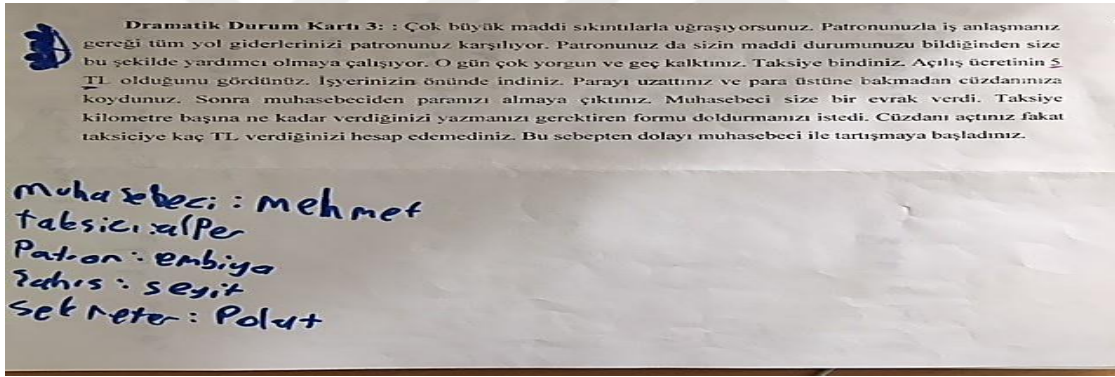 Dramatik Durum Kartı 3: : Çok büyük maddi sıkıntılarla uğraşıyorsunuz. Patronunuzla iş anlaşmanız
gereği tüm yol giderlerinizi patronunuz karşılıyor. Patronunuz da sizin maddi durumunuzu bildiğinden size
bu şekilde yardımcı olmaya çalışıyor. O gün çok yorgun ve geç kalktınız. Taksiye bindiniz. Açılış ücretinin 5
TL olduğunu gördünüz. İşyerinizin önünde indiniz. Parayı uzattınız ve para üstüne bakmadan cüzdanınıza
koydunuz. Sonra muhasebeciden paranızı almaya çıktınız. Muhasebeci size bir evrak verdi. Taksiye
kilometre başına ne kadar verdiğinizi yazmanızı gerektiren formu doldurmanızı istedi. Cüzdanı açtınız fakat
taksiciye kaç TL verdiğinizi hesap edemediniz. Bu sebepten dolayı muhasebeci ile tartışmaya başladınız.
muhasebeci : mehmet
taksici : alper
Patron : embiya
Şahıs : seyit
Sekreter : Polat